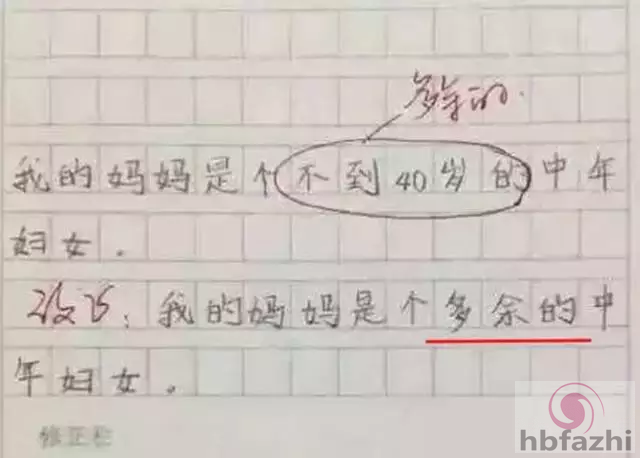 多余的.
我的妈妈是个不到40岁的中年
妇女.
改巧:我的妈妈是个多余的中
年妇女.
修正栏
hbfazhi